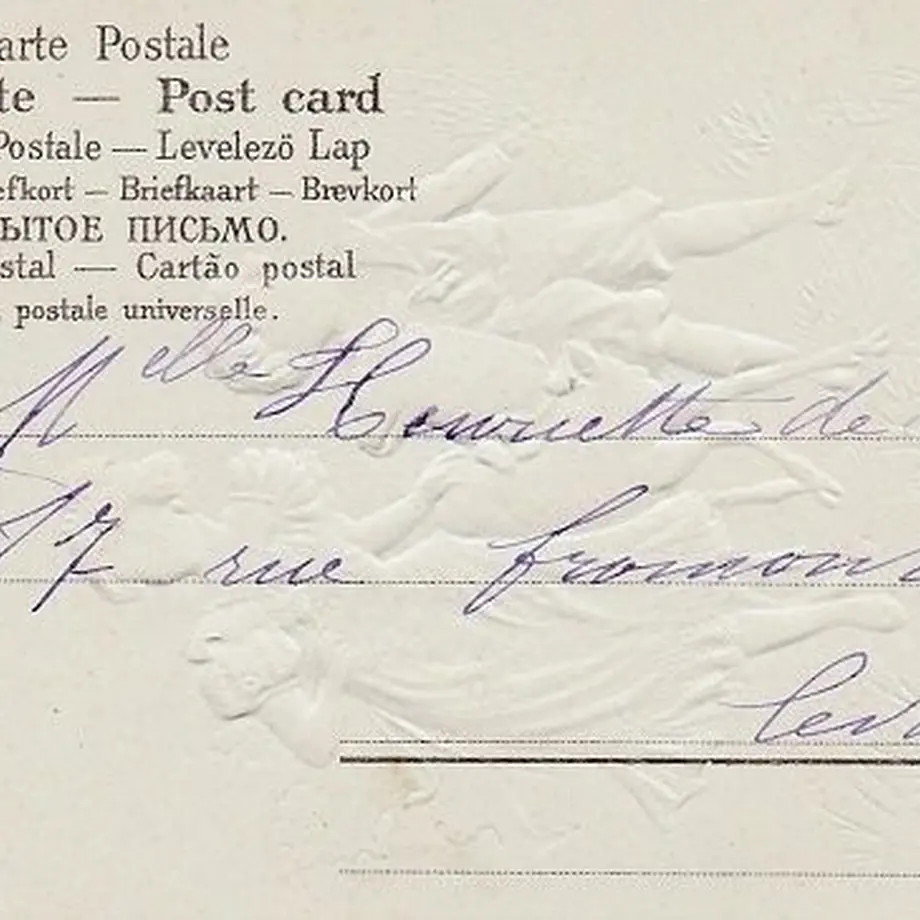 arte Postale
te — Post card
Postale — Levelező Lap
efkort — Briefkaart — Brevkort
ЫТОЕ ПИСЬМО.
stal — Cartão postal
postale universelle.
Melle Henriette de
17 rue fromon